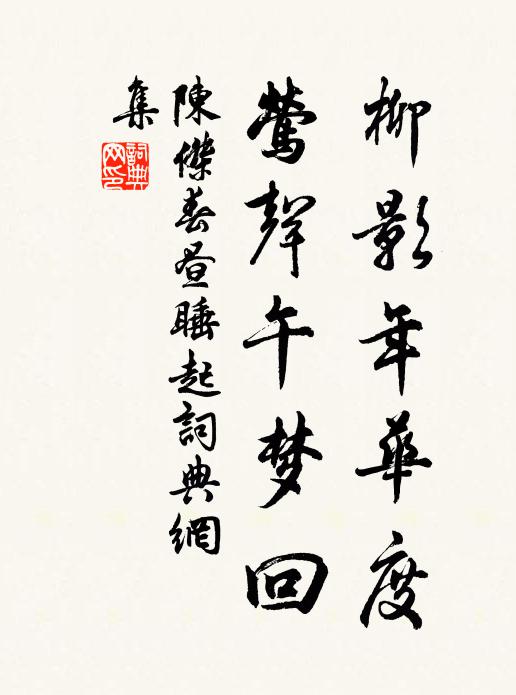 柳影年華度
鶯聲午梦回
陳傑春昼睡起詞典網
集
詞典网印